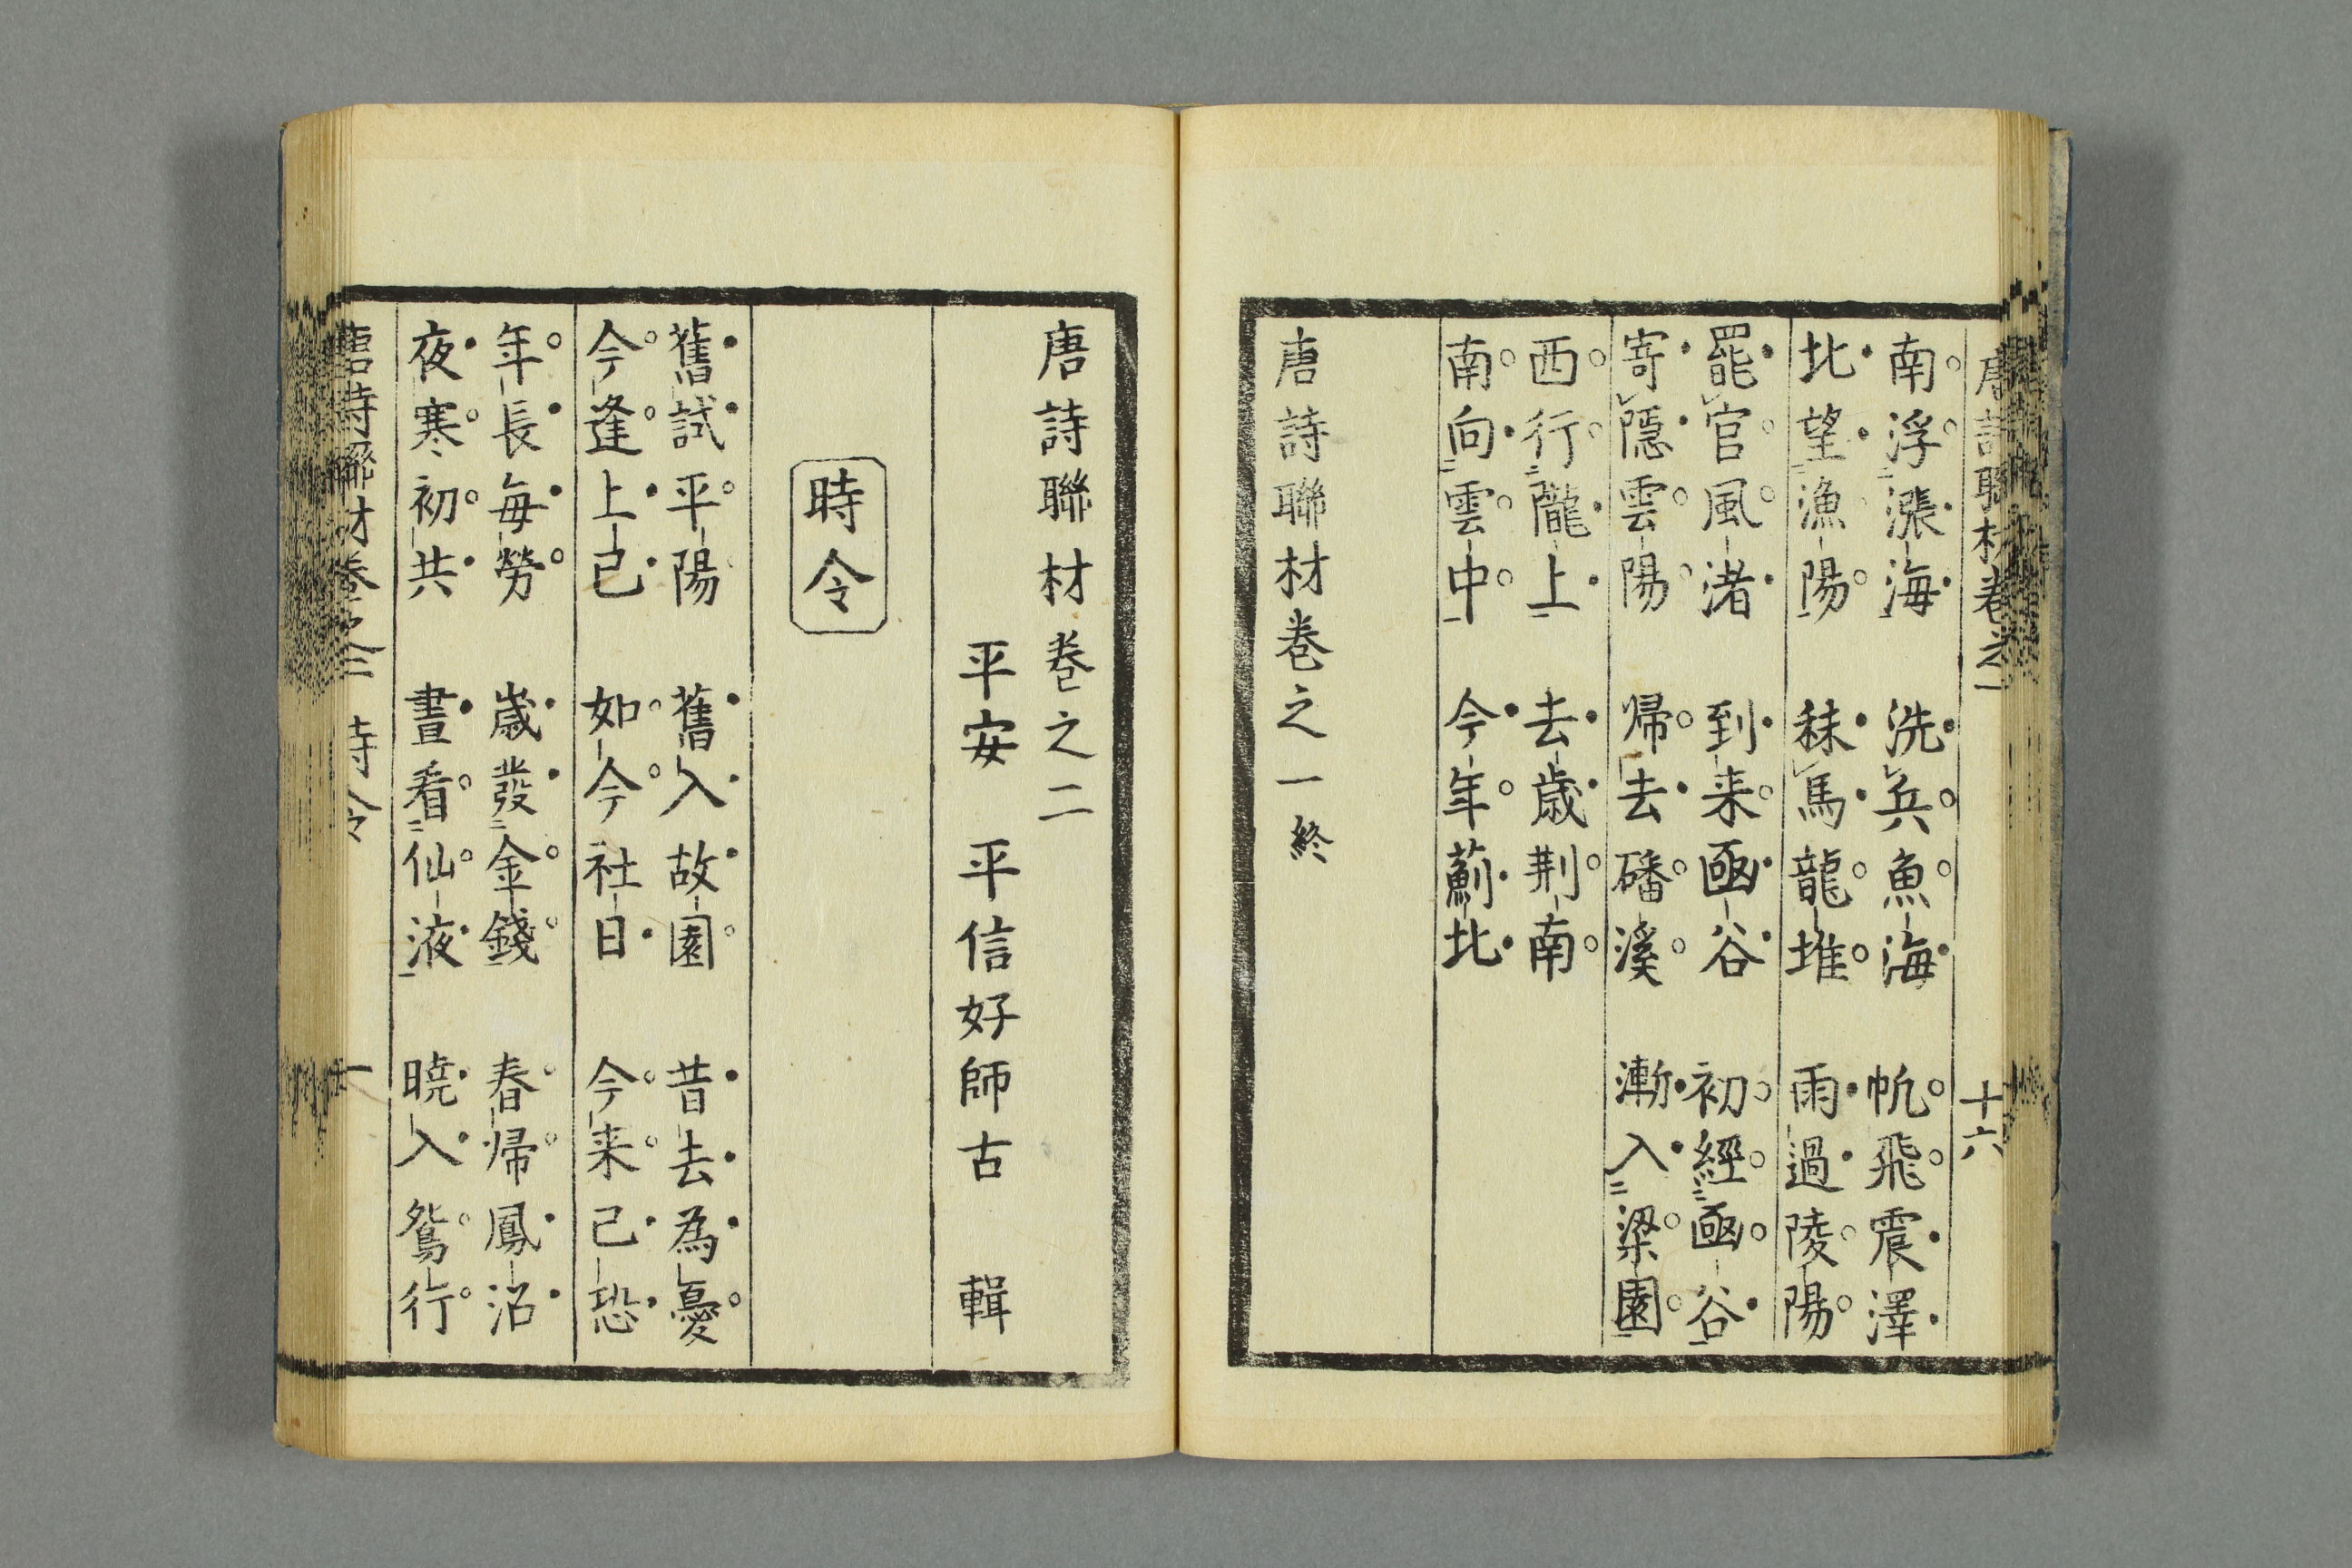 唐詩聯材巻之一
十六
南浮漲海 洗兵魚海 帆飛震澤
北望漁陽 秣馬龍堆 雨過陵陽
罷官風渚 到来凾谷 初經凾谷
寄隠雲陽 帰去磻溪 漸入梁園
西行隴上 去歳荆南
南向雲中 今年薊北
唐詩聯材巻之一終
唐詩聯材巻之二
平安 平信好師古 輯
時令
舊試平陽 舊入故園 昔去為憂
今逢上已 如今社日 今来己恐
年長毎勞 歳發金錢 春帰鳳沼
夜寒初共 晝看仙液 曉入鴛行
唐詩聯材巻之二 時令 一